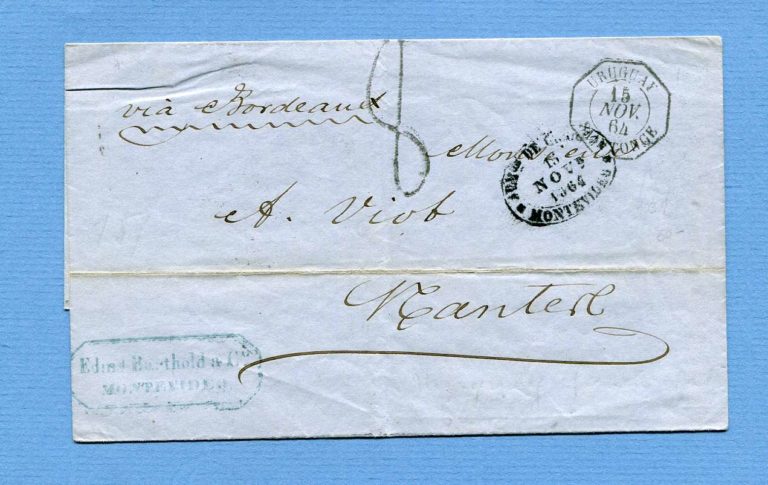 via Bordeaux
8
URUGUAY
15
NOV.
64
SAINTONGE
Monsieur
ADMon DE CORREOS
15
NOVE
1864
MONTEVIDEO
A. Viot
Nantes
Edmd Berthold & Cie
MONTEVIDEO